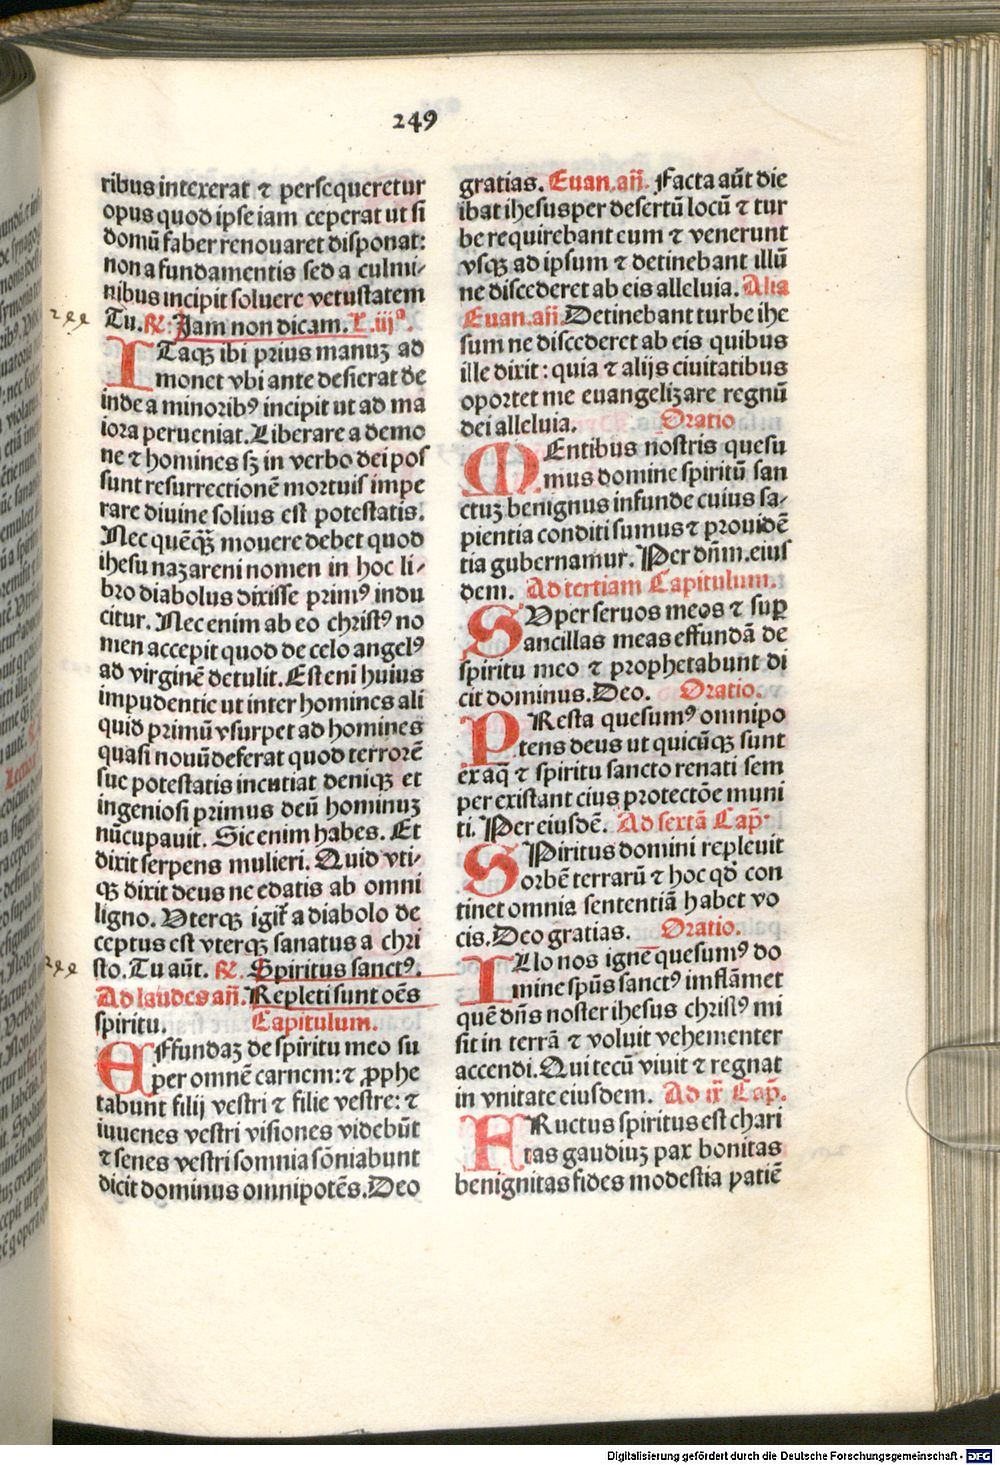 249
ribus intexerat ⁊ persequeretur
opus quod ipse iam ceperat ut si
domū faber renouaret disponat:
non a fundamentis sed a culmi-
nibus incipit soluere vetustatem
Tu. ℟: Iam non dicam. L. iijª.
ITaqꝫ ibi prius manuꝫ ad
monet vbi ante desierat de
inde a minoribꝰ incipit ut ad ma
iora perueniat. Liberare a demo
ne ⁊ homines sꝫ in verbo dei pos
sunt resurrectionē mortuis impe
rare diuine solius est potestatis.
Nec quēqꝫ mouere debet quod
ihesu nazareni nomen in hoc li-
bro diabolus dixisse primꝰ indu
citur. Nec enim ab eo christꝰ no
men accepit quod de celo angelꝰ
ad virginē detulit. Est enī huius
impudentie ut inter homines ali
quid primū vsurpet ad homines
quasi nouū deferat quod terrorē
sue potestatis incutiat deniqꝫ et
ingeniosi primus deū hominuꝫ
nūcupauit. Sic enim habes. Et
dixit serpens mulieri. Quid vti-
qꝫ dixit deus ne edatis ab omni
ligno. Vterqꝫ igit̄ a diabolo de
ceptus est vterqꝫ sanatus a chri
sto. Tu aūt. ℟. Spiritus sanctꝰ.
Ad laudes añ. Repleti sunt oēs
spiritu. Capitulum.
EFfundaꝫ de spiritu meo su
per omnē carnem: ⁊ ꝓphe
tabunt filij vestri ⁊ filie vestre: ⁊
iuuenes vestri visiones videbūt
⁊ senes vestri somnia sōniabunt
dicit dominus omnipotēs. Deo
gratias. Euan. añ. Facta aūt die
ibat ihesus per desertū locū ⁊ tur
be requirebant eum ⁊ venerunt
vsqꝫ ad ipsum ⁊ detinebant illū
ne discederet ab eis alleluia. Alia
Euan. añ. Detinebant turbe ihe
sum ne discederet ab eis quibus
ille dixit: quia ⁊ alijs ciuitatibus
oportet me euangelizare regnū
dei alleluia. Oratio
MEntibus nostris quesu
mus domine spiritū san
ctuꝫ benignus infunde cuius sa-
pientia conditi sumus ⁊ prouidē
tia gubernamur. Per dn̄m. eius
dem. Ad tertiam Capitulum.
SVper seruos meos ⁊ suꝑ
ancillas meas effundā de
spiritu meo ⁊ prophetabunt di
cit dominus. Deo. Oratio.
PResta quesumꝰ omnipo
tens deus ut quicūqꝫ sunt
ex aq̄ ⁊ spiritu sancto renati sem
per existant eius protectōe muni
ti. Per eiusdē. Ad sextā Cap̄.
SPiritus domini repleuit
orbē terrarū ⁊ hoc qd̄ con
tinet omnia sententiā habet vo
cis. Deo gratias. Oratio.
ILlo nos ignē quesumꝰ do
mine sp̄us sanctꝰ inflāmet
quē dn̄s noster ihesus christꝰ mi
sit in terrā ⁊ voluit vehementer
accendi. Qui tecū viuit ⁊ regnat
in vnitate eiusdem. Ad ix̄ Cap̄.
FRuctus spiritus est chari
tas gaudiuꝫ pax bonitas
benignitas fides modestia patiē
Digitalisierung gefördert durch die Deutsche Forschungsgemeinschaft - DFG